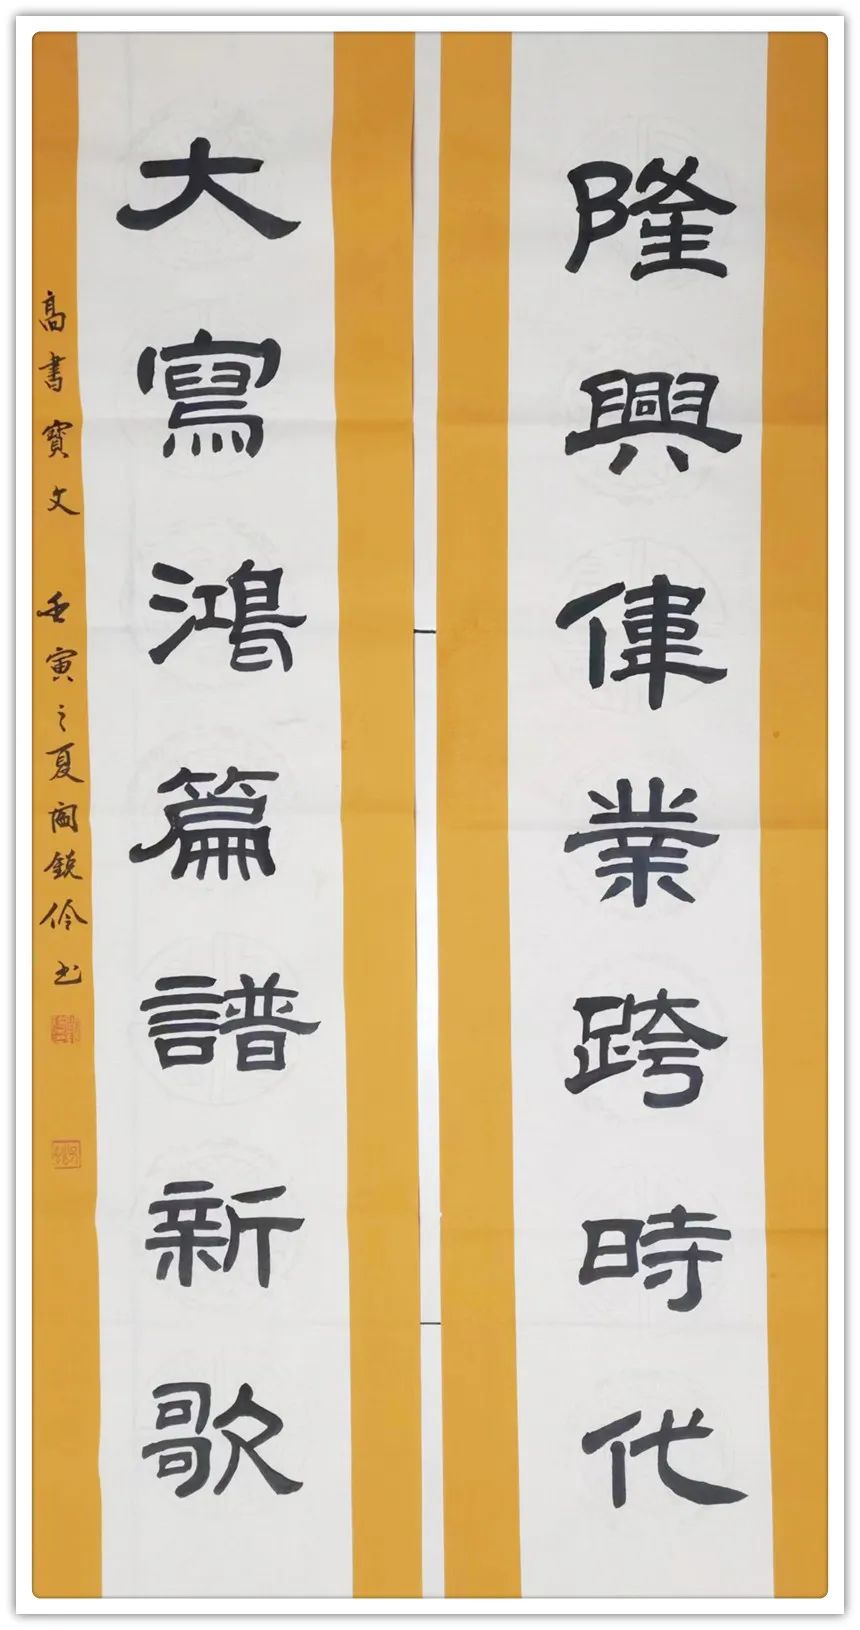 隆興偉業跨時代
大寫鴻篇譜新歌
高書寶文 壬寅之夏 鏡伶书